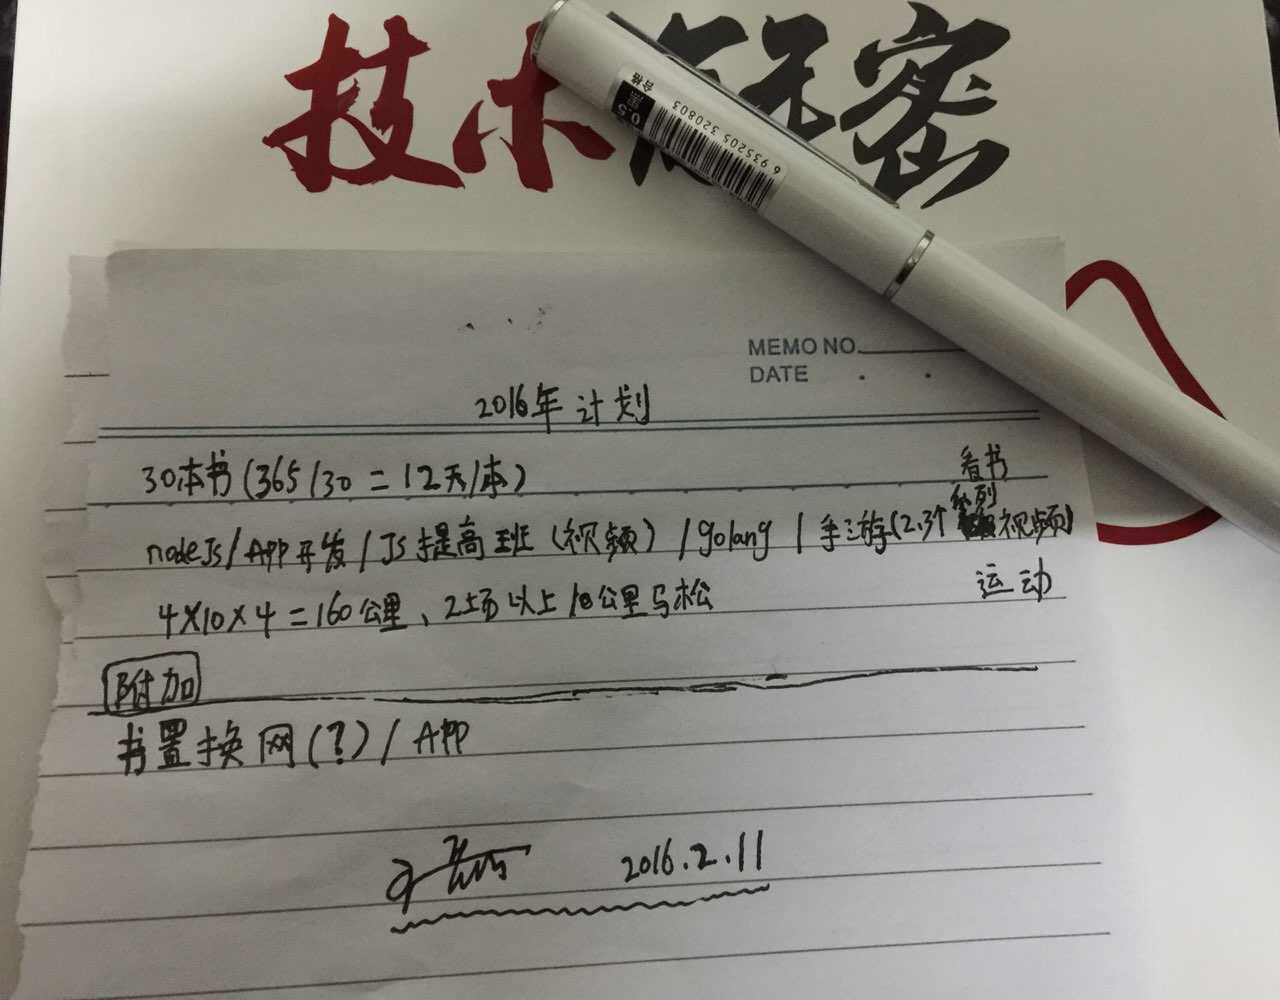 技术
密
合格
黑
0.5
6 935205 320803
MEMO NO.
DATE . .
2016年 计划
30本书(365/30=12天/本) 看书
系列
nodeJs/APP开发/Js提高班(视频)/golang/手游(2,3个视频)
4×10×4=160公里、2场以上10公里马松 运动
附加
书置换网(?)/APP
2016.2.11